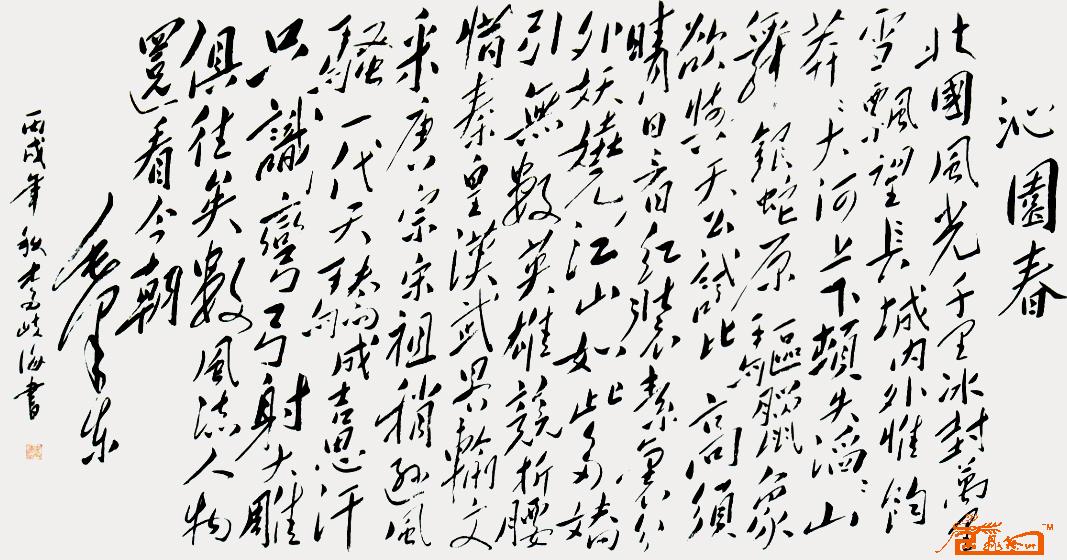 沁園春
北國風光千里冰封萬里
雪飄望長城內外惟餘
莽〻大河上下頓失滔〻山
舞銀蛇原馳臘象
欲與天公試比高須
晴日看紅裝素裹分
外妖嬈江山如此多嬌
引無數英雄競折腰
惜秦皇漢武略輸文
采唐宗宋祖稍遜風
騷一代天驕成吉思汗
只識彎弓射大雕
俱往矣數風流人物
還看今朝
毛澤東
丙戌年秋海書